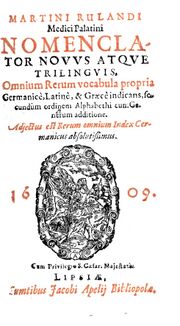 MARTINI RULANDI
Medici Palatini
NOMENCLA-
TOR NOVUS ATQVE
TRILINGVIS,
Omnium Rerum vocabula propria
Germanicè, Latinè, & Græcè indicans, se-
cundùm ordinem Alphabethi cum Ge-
nerum additione.
Adjectus est Rerum omnium Index Ger-
manicus absolutissimus.
1609.
Cum Privilegio S. Cæsar. Majestatis.
LIPSIÆ,
Sumtibus Jacobi Apelij Bibliopolæ.